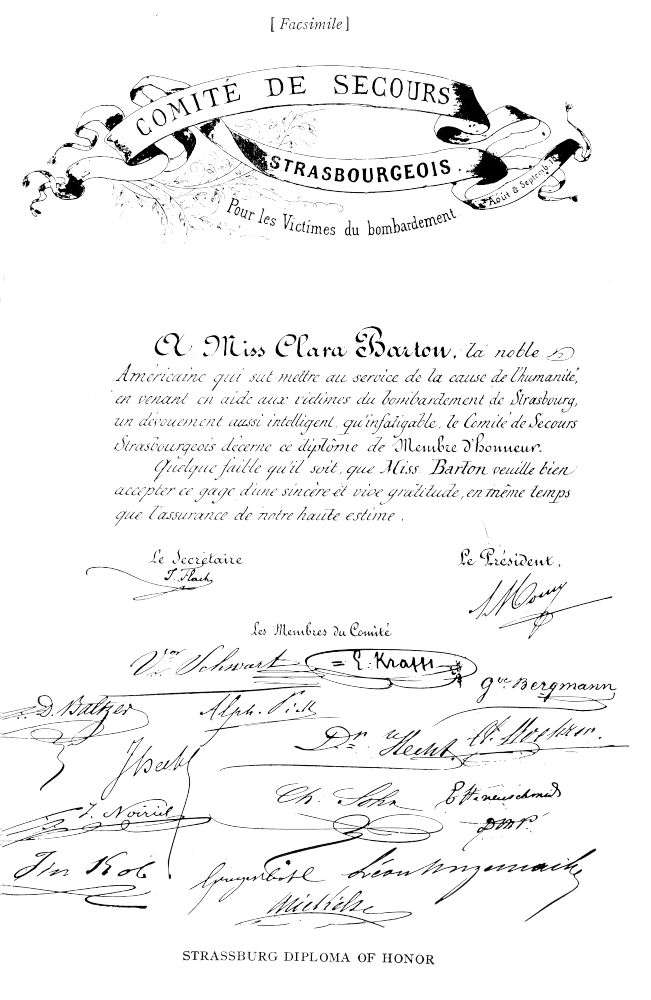 [ Facsimile ]
COMITÉ DE SECOURS
STRASBOURGEOIS.
Août & Septembre
Pour les Victimes du bombardement
A Miss Clara Barton, la noble
Américaine qui sut mettre au service de la cause de l'humanité,
en venant en aide aux victimes du bombardement de Strasbourg,
un dévouement aussi intelligent, qu'infatigable, le Comité de Secours
Strasbourgeois décerne ce diplôme de Membre d'honneur.
Quelque faible qu'il soit, que Miss Barton veuille bien
accepter ce gage d'une sincère et vive gratitude, en même temps
que l'assurance de notre haute estime.
Le Secrétaire
Le Président.
J. Flach
Les Membres du Comité
Schwart
E. Krafft
Gve Bergmann
D. Baltzer
Alph.
Dr Hecht
J. Noiriel
Ch. Sohn
STRASSBURG DIPLOMA OF HONOR